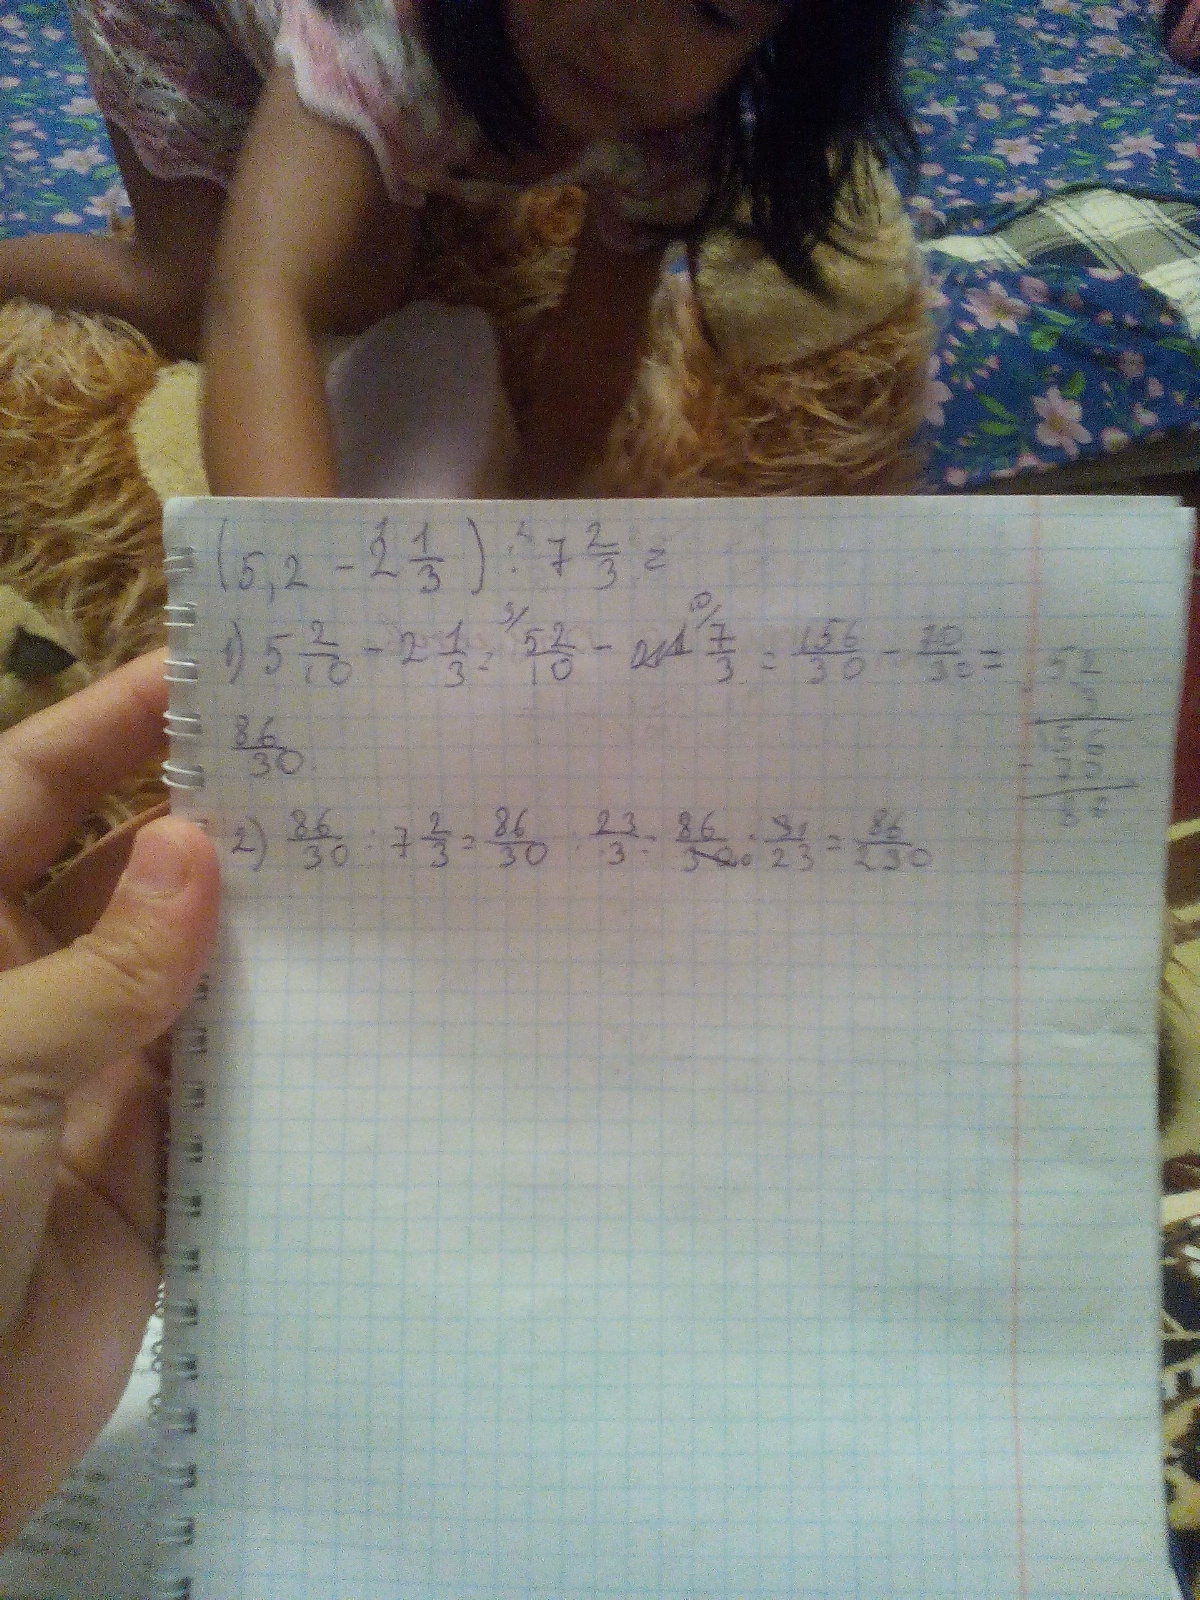 (5,2 - 2 1/3) : 7 2/3 =
1) 5 2/10 - 2 1/3 = 3/ 52/10 - 10/ 7/3 = 156/30 - 70/30 =
86/30.
2) 86/30 : 7 2/3 = 86/30 : 23/3 = 86/30 · 31/23 = 86/230
52
3
156
70
86